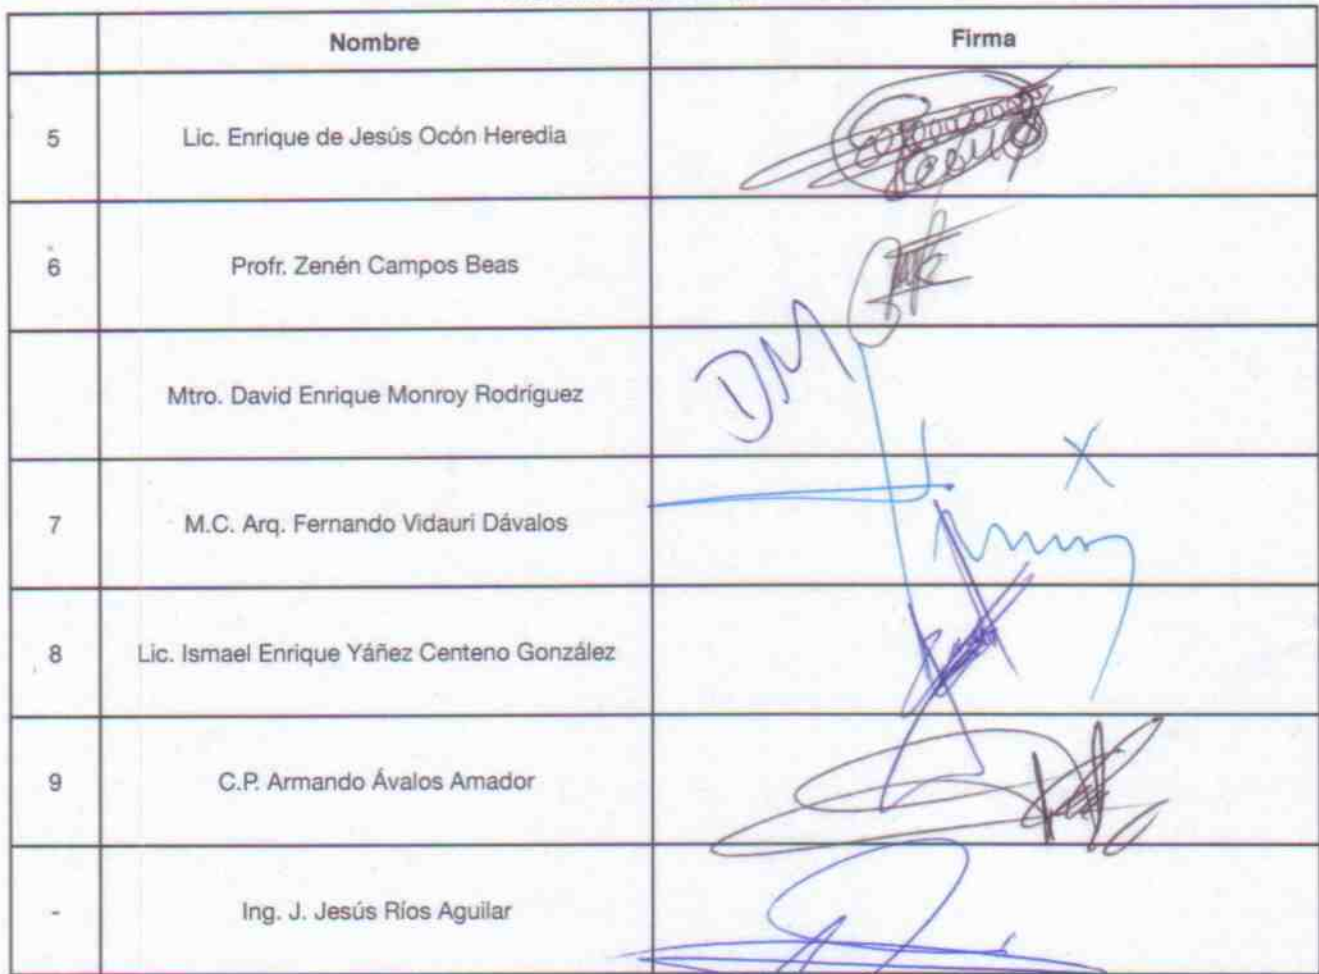 Nombre Firma
5 Lic. Enrique de Jesús Ocón Heredia
6 Profr. Zenén Campos Beas
Mtro. David Enrique Monroy Rodríguez DM
7 M.C. Arq. Fernando Vidauri Dávalos
8 Lic. Ismael Enrique Yáñez Centeno González
9 C.P. Armando Ávalos Amador
- Ing. J. Jesús Ríos Aguilar